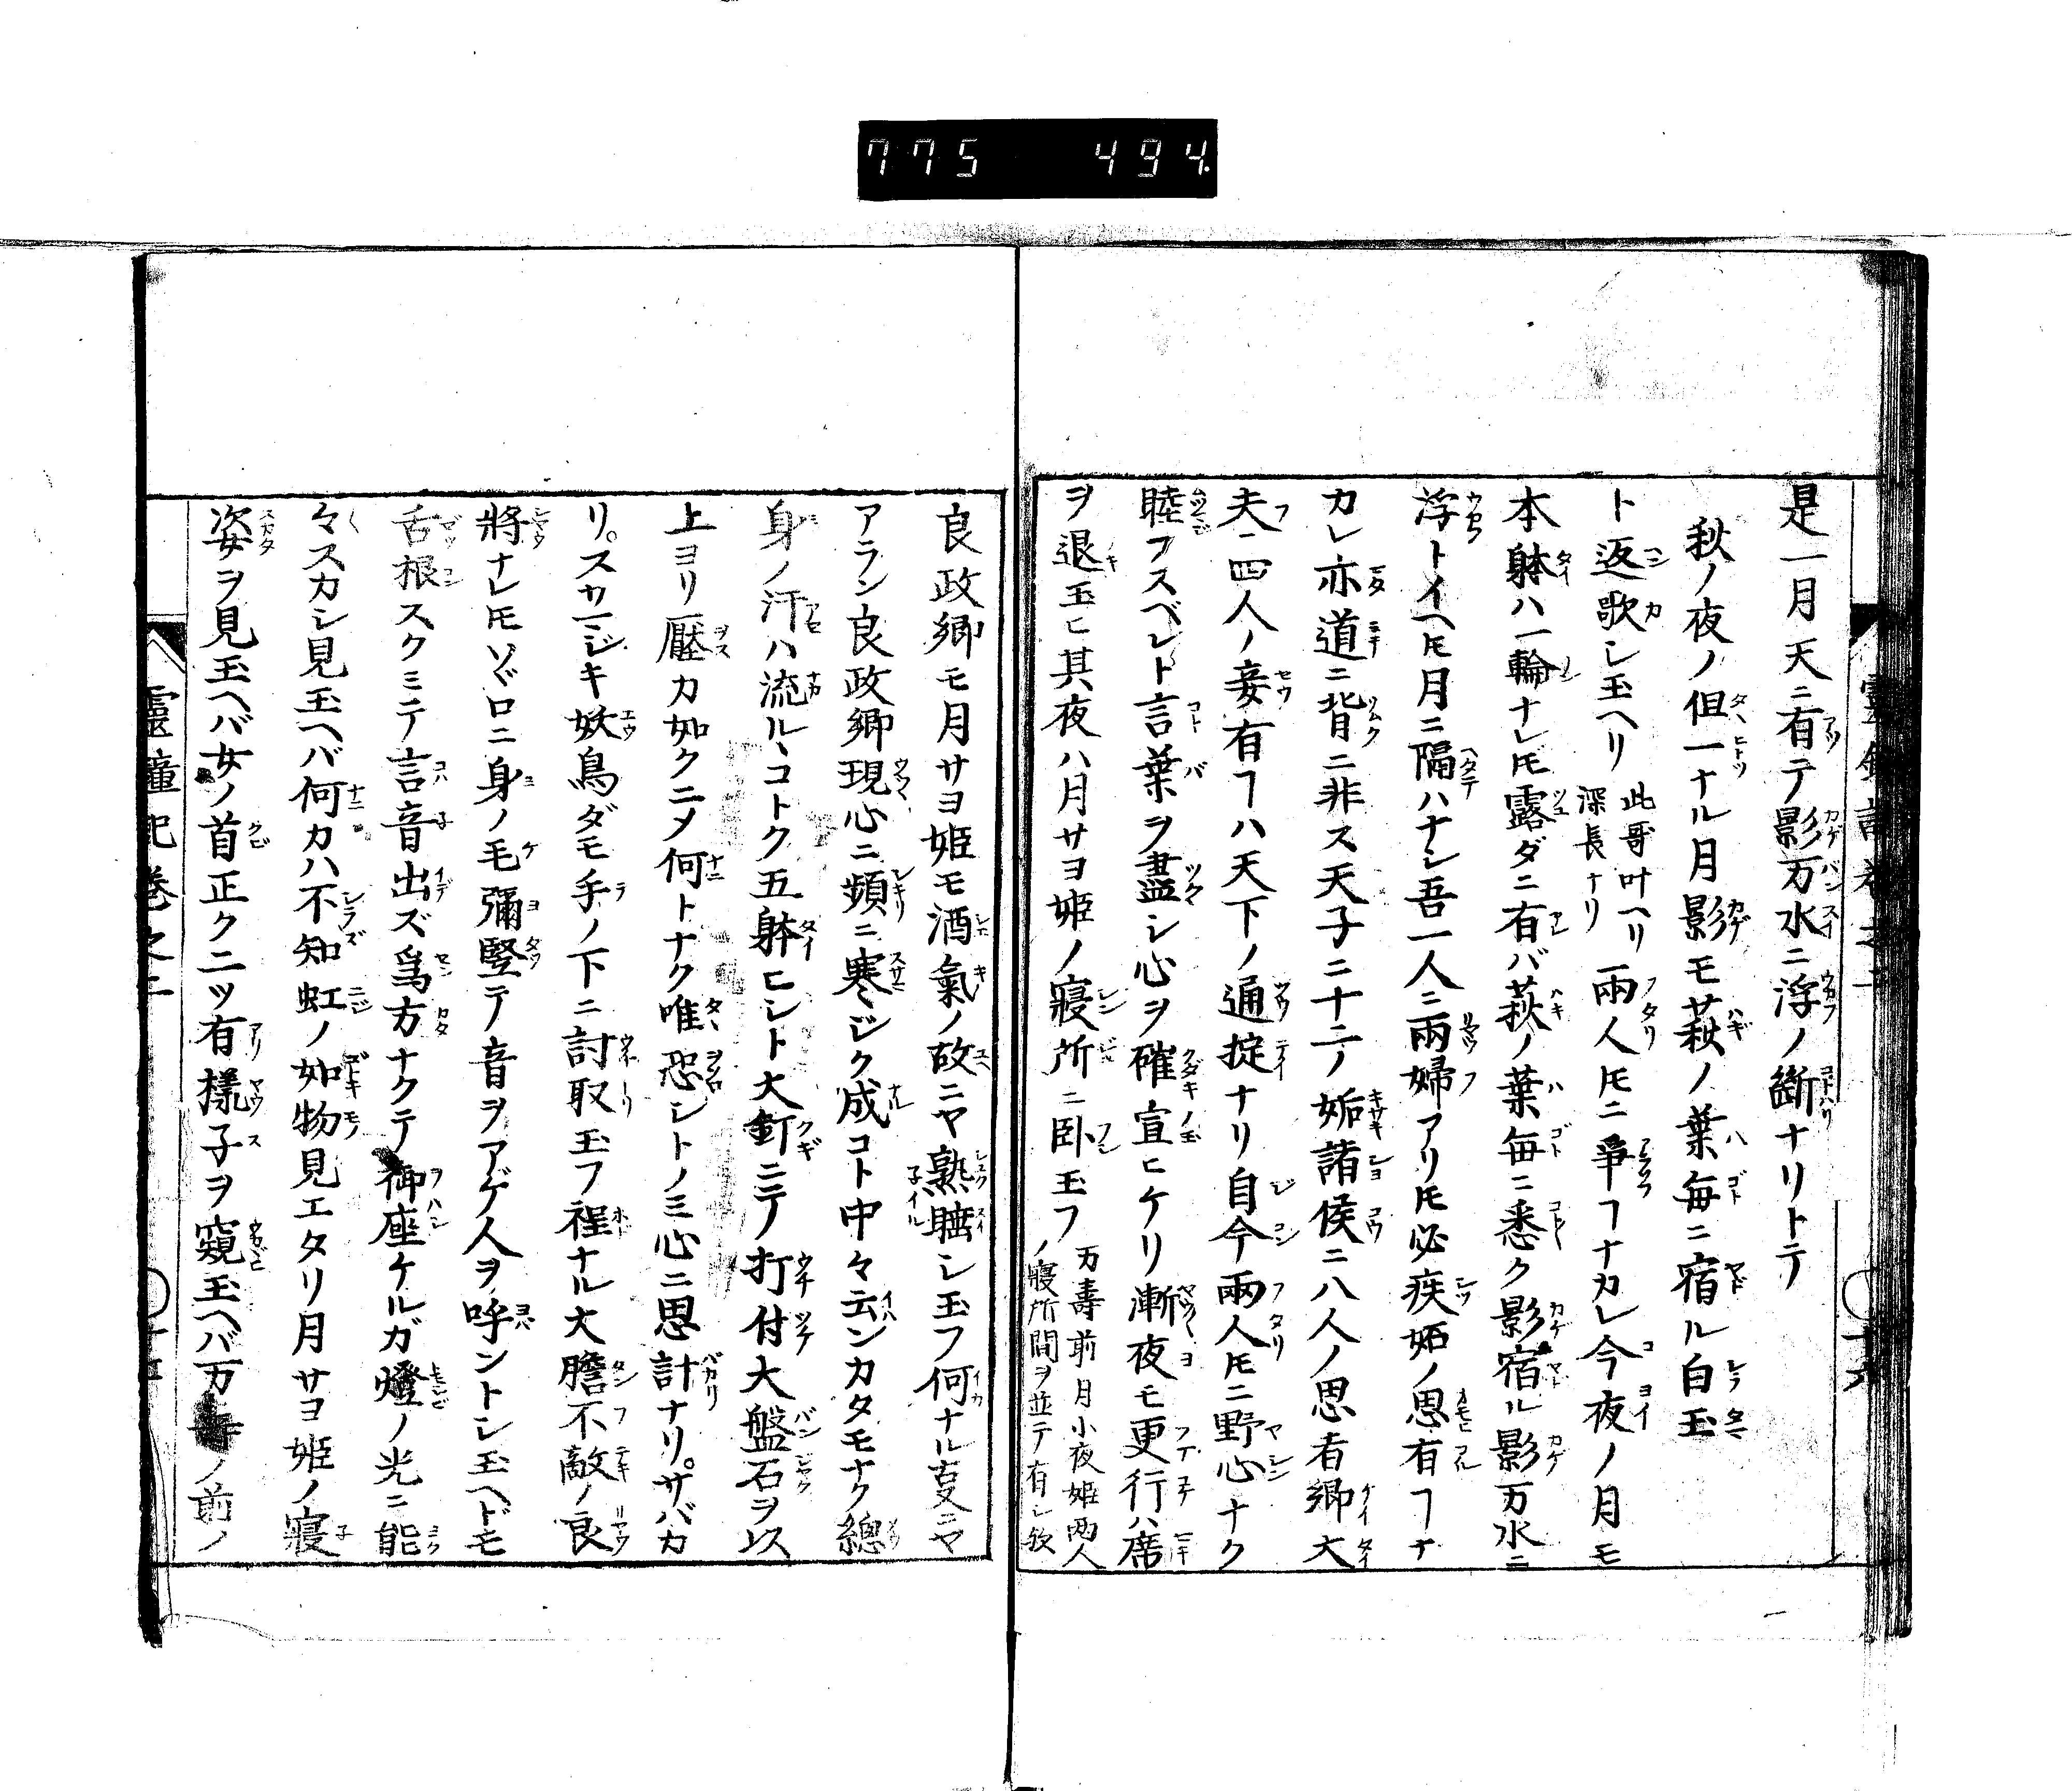 775 494.
是一月天ニ有テ影万水ニ浮ノ斷ナリトテ
秋ノ夜ノ但一ナル月影モ萩ノ葉毎ニ宿ル白玉
ト返歌シ玉ヘリ 此哥叶ヘリ深長ナリ 兩人𪜈ニ爭フナカレ今夜ノ月モ
本躰ハ一輪ナレ𪜈露ダニ有バ萩ノ葉毎ニ悉ク影宿ル影万水ニ
浮トイヘ𪜈月ニ隔ハナシ吾一人ニ兩婦アリ𪜈必疾妬ノ思有ヿナ
カレ亦道ニ背ニ非ス天子ニ十二ノ姤諸侯ニ八人ノ思者卿大
夫ニ四人ノ妾有ヿハ天下ノ通掟ナリ自今兩人𪜈ニ野心ナク
睦フスベレト言葉ヲ盡シ心ヲ碓宣ヒケリ漸夜モ更行ハ席
ヲ退玉ヒ其夜ハ月サヨ姫ノ寝所ニ卧玉フ 万壽前月小夜姫两人ノ寢所間ヲ並テ有シ欤
良政卿モ月サヨ姫モ酒氣ノ故ニヤ熟睡シ玉フ何ナル叓ニヤ
アラン良政卿現心ニ頻ニ寒シク成コト中々云ンカタモナク總
身ノ汗ハ流ルヽコトク五躰ヒシト大釘ニテ打付大盤石ヲ以
上ヨリ壓カ如クニメ何トナク唯恐シトノミ心ニ思計ナリ。サバカ
リ。スサマジキ妖鳥ダモ手ノ下ニ討取玉フ程ナル大膽不敵ノ良
將ナレ𪜈ソゾロニ身ノ毛彌竪テ音ヲアゲ人ヲ呼ントシ玉ヘドモ
舌根スクミテ言音出ズ爲方ナクテ御座ケルガ燈ノ光ニ能
々スカシ見玉ヘバ何カハ不知虹ノ如物見エタリ月サヨ姫ノ寢
姿ヲ見玉ヘバ女ノ首正ク二ツ有樣子ヲ窺玉ヘバ万壽ノ前ノ